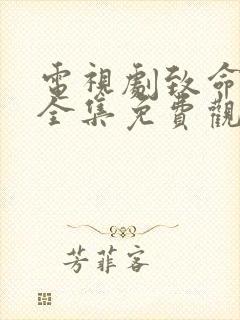 電視劇致命
全集免費觀
芳菲客